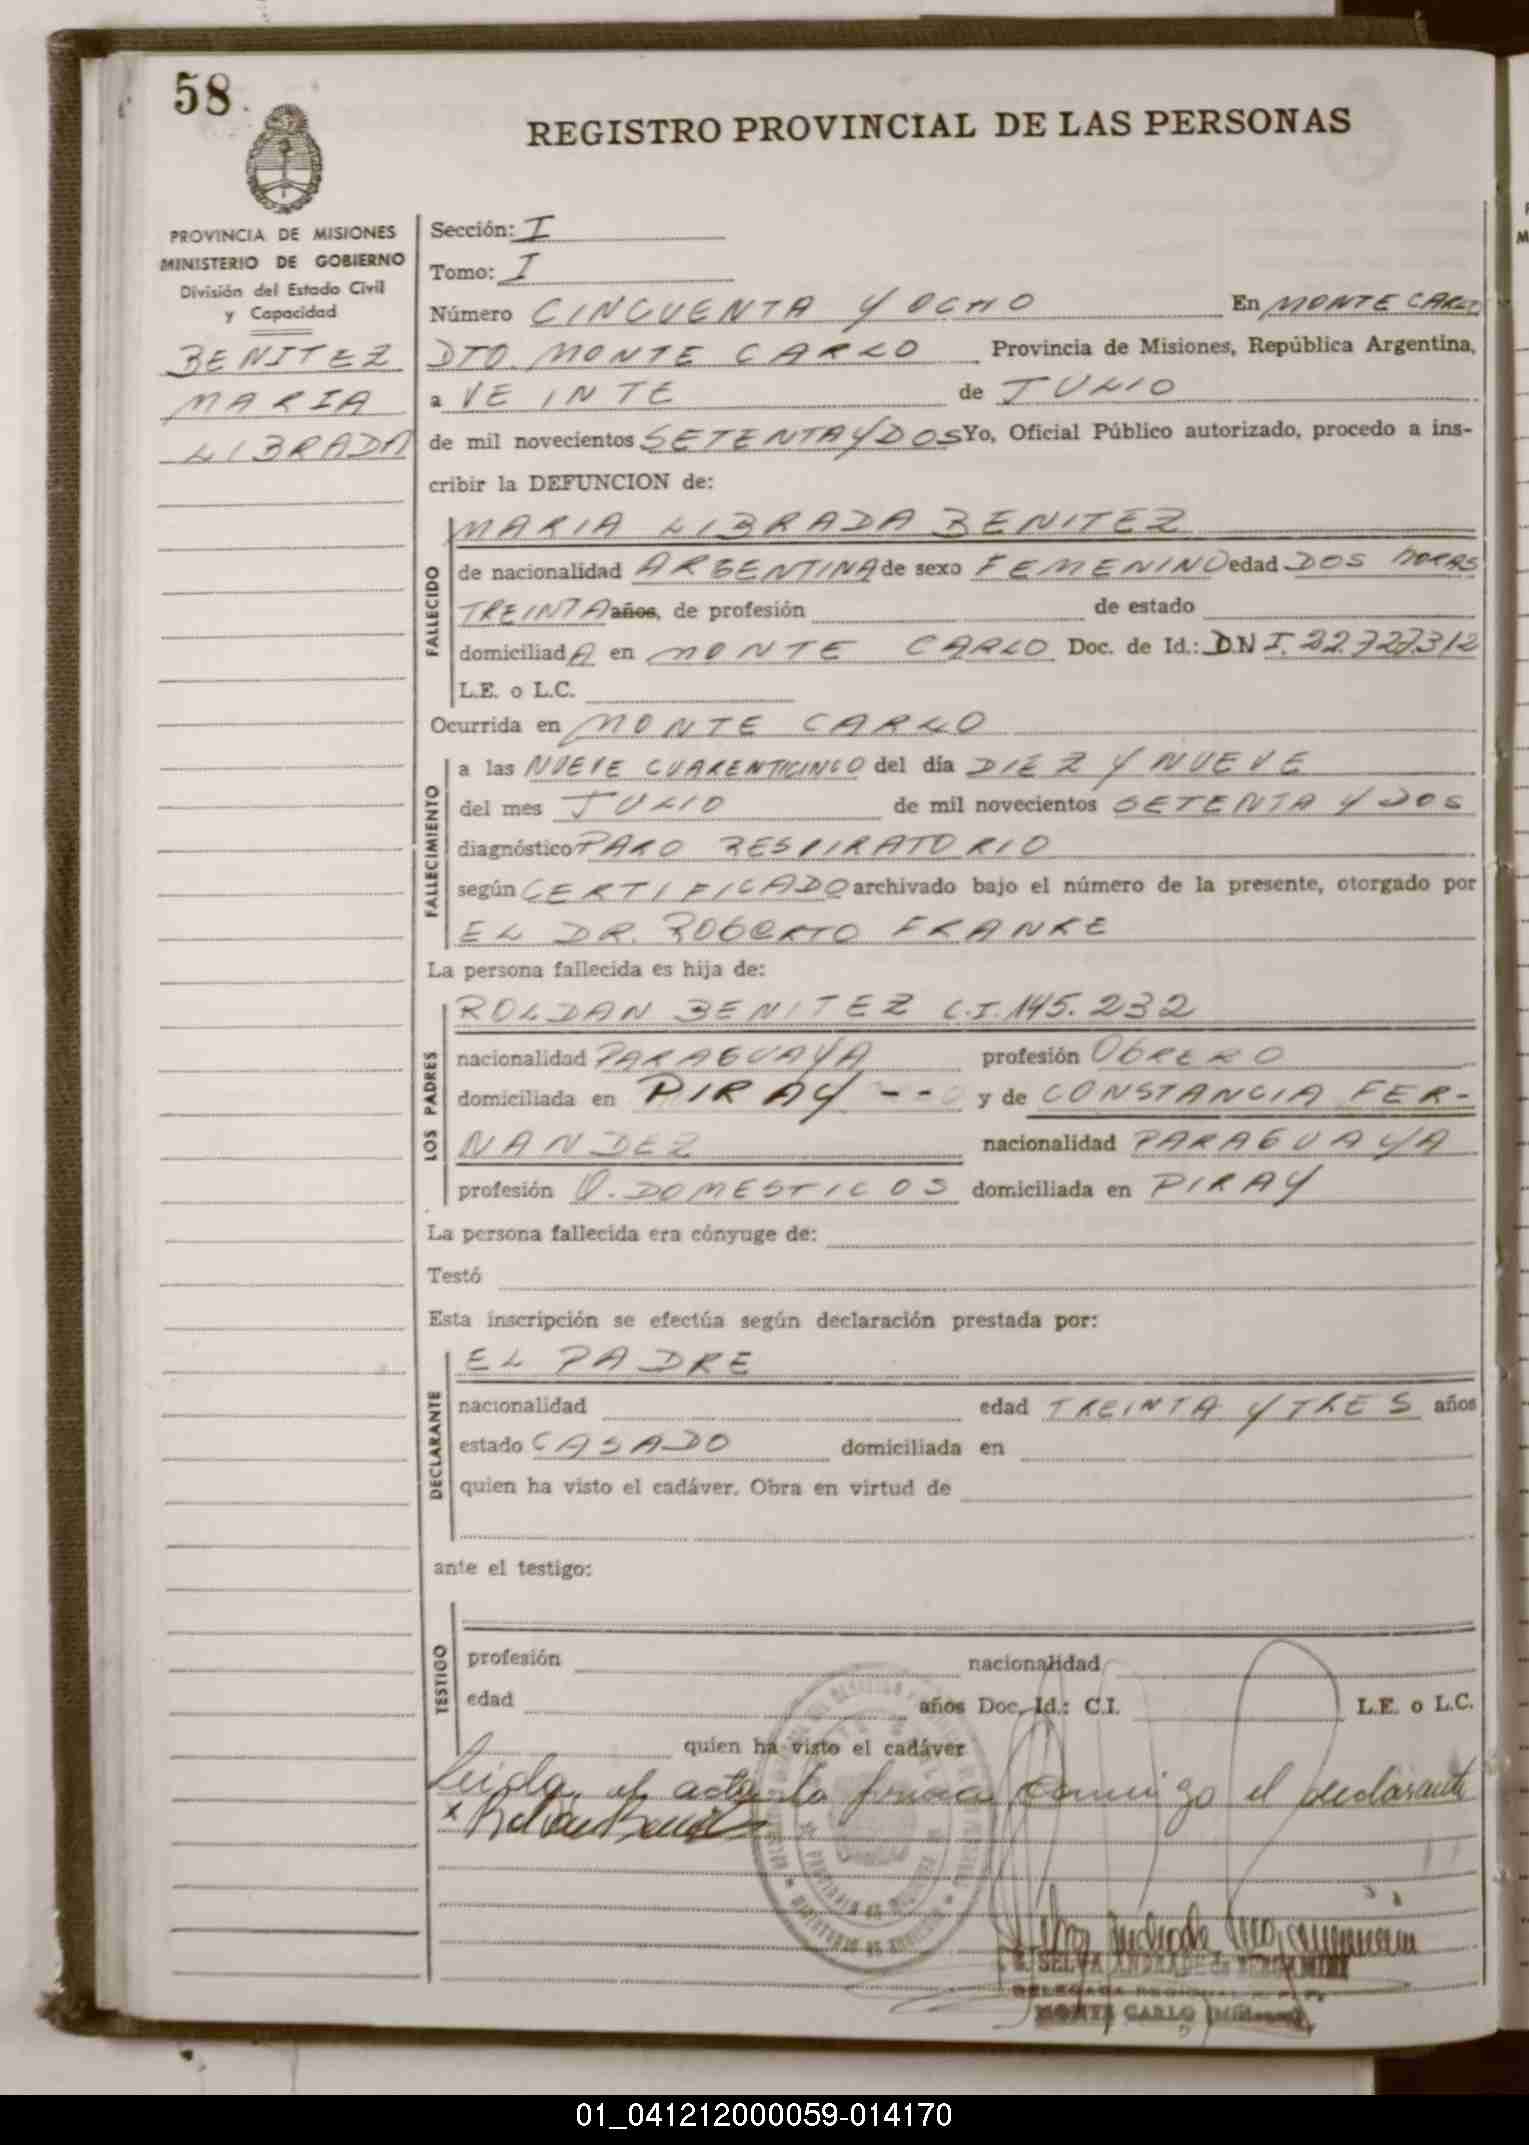 58
REGISTRO PROVINCIAL DE LAS PERSONAS
PROVINCIA DE MISIONES
MINISTERIO DE GOBIERNO
División del Estado Civil
y Capacidad
BENITEZ
MARIA
LIBRADA
Sección: I
Tomo: I
Número CINCUENTA Y OCHO En MONTE CARLO
DTO. MONTE CARLO Provincia de Misiones, República Argentina,
a VEINTE de JULIO
de mil novecientos SETENTA Y DOS Yo, Oficial Público autorizado, procedo a ins-
cribir la DEFUNCION de:
FALLECIDO
MARIA LIBRADA BENITEZ
de nacionalidad ARGENTINA de sexo FEMENINO edad DOS HORAS
TREINTA años, de profesión de estado
domiciliad A en MONTE CARLO Doc. de Id.: D.N I. 22.727.312
L.E. o L.C.
Ocurrida en MONTE CARLO
FALLECIMIENTO
a las NUEVE CUARENTICINCO del día DIEZ Y NUEVE
del mes JULIO de mil novecientos SETENTA Y DOS
diagnóstico PARO RESPIRATORIO
según CERTIFICADO archivado bajo el número de la presente, otorgado por
EL DR. ROBERTO FRANKE
La persona fallecida es hija de:
LOS PADRES
ROLDAN BENITEZ C.I. 145.232
nacionalidad PARAGUAYA profesión OBRERO
domiciliada en PIRAY -- y de CONSTANCIA FER-
NANDEZ nacionalidad PARAGUAYA
profesión Q. DOMESTICOS domiciliada en PIRAY
La persona fallecida era cónyuge de:
Testó
Esta inscripción se efectúa según declaración prestada por:
DECLARANTE
EL PADRE
nacionalidad edad TREINTA Y TRES años
estado CASADO domiciliada en
quien ha visto el cadáver. Obra en virtud de
ante el testigo:
TESTIGO
profesión nacionalidad
edad años Doc. Id.: C.I. L.E. o L.C.
quien ha visto el cadáver
Leida el acta la firma conmigo el declarante
x
SELVA ANDRADE de
DELEGADA REGIONAL
MONTE CARLO (Misiones)
01_041212000059-014170